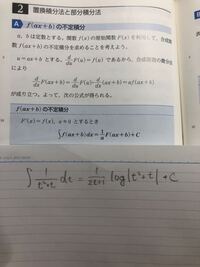 2 置換積分法と部分積分法
A f(ax+b)の不定積分
a, b は定数とする。関数 f(x) の原始関数 F(x) を利用して, 合成関
数 f(ax+b) の不定積分を求めることを考えよう。
u=ax+b とする。 d/du F(u)=f(u) であるから, 合成関数の微分法
により
d/dx F(ax+b)=d/du F(u)・d/dx (ax+b)=af(ax+b)
が成り立つ。よって, 次の公式が得られる。
f(ax+b)の不定積分
F'(x)=f(x), a≠0 とするとき
∫f(ax+b)dx=1/a F(ax+b)+C
∫ 1/(t²+t) dt = 1/(2t+1) log|t²+t| + C